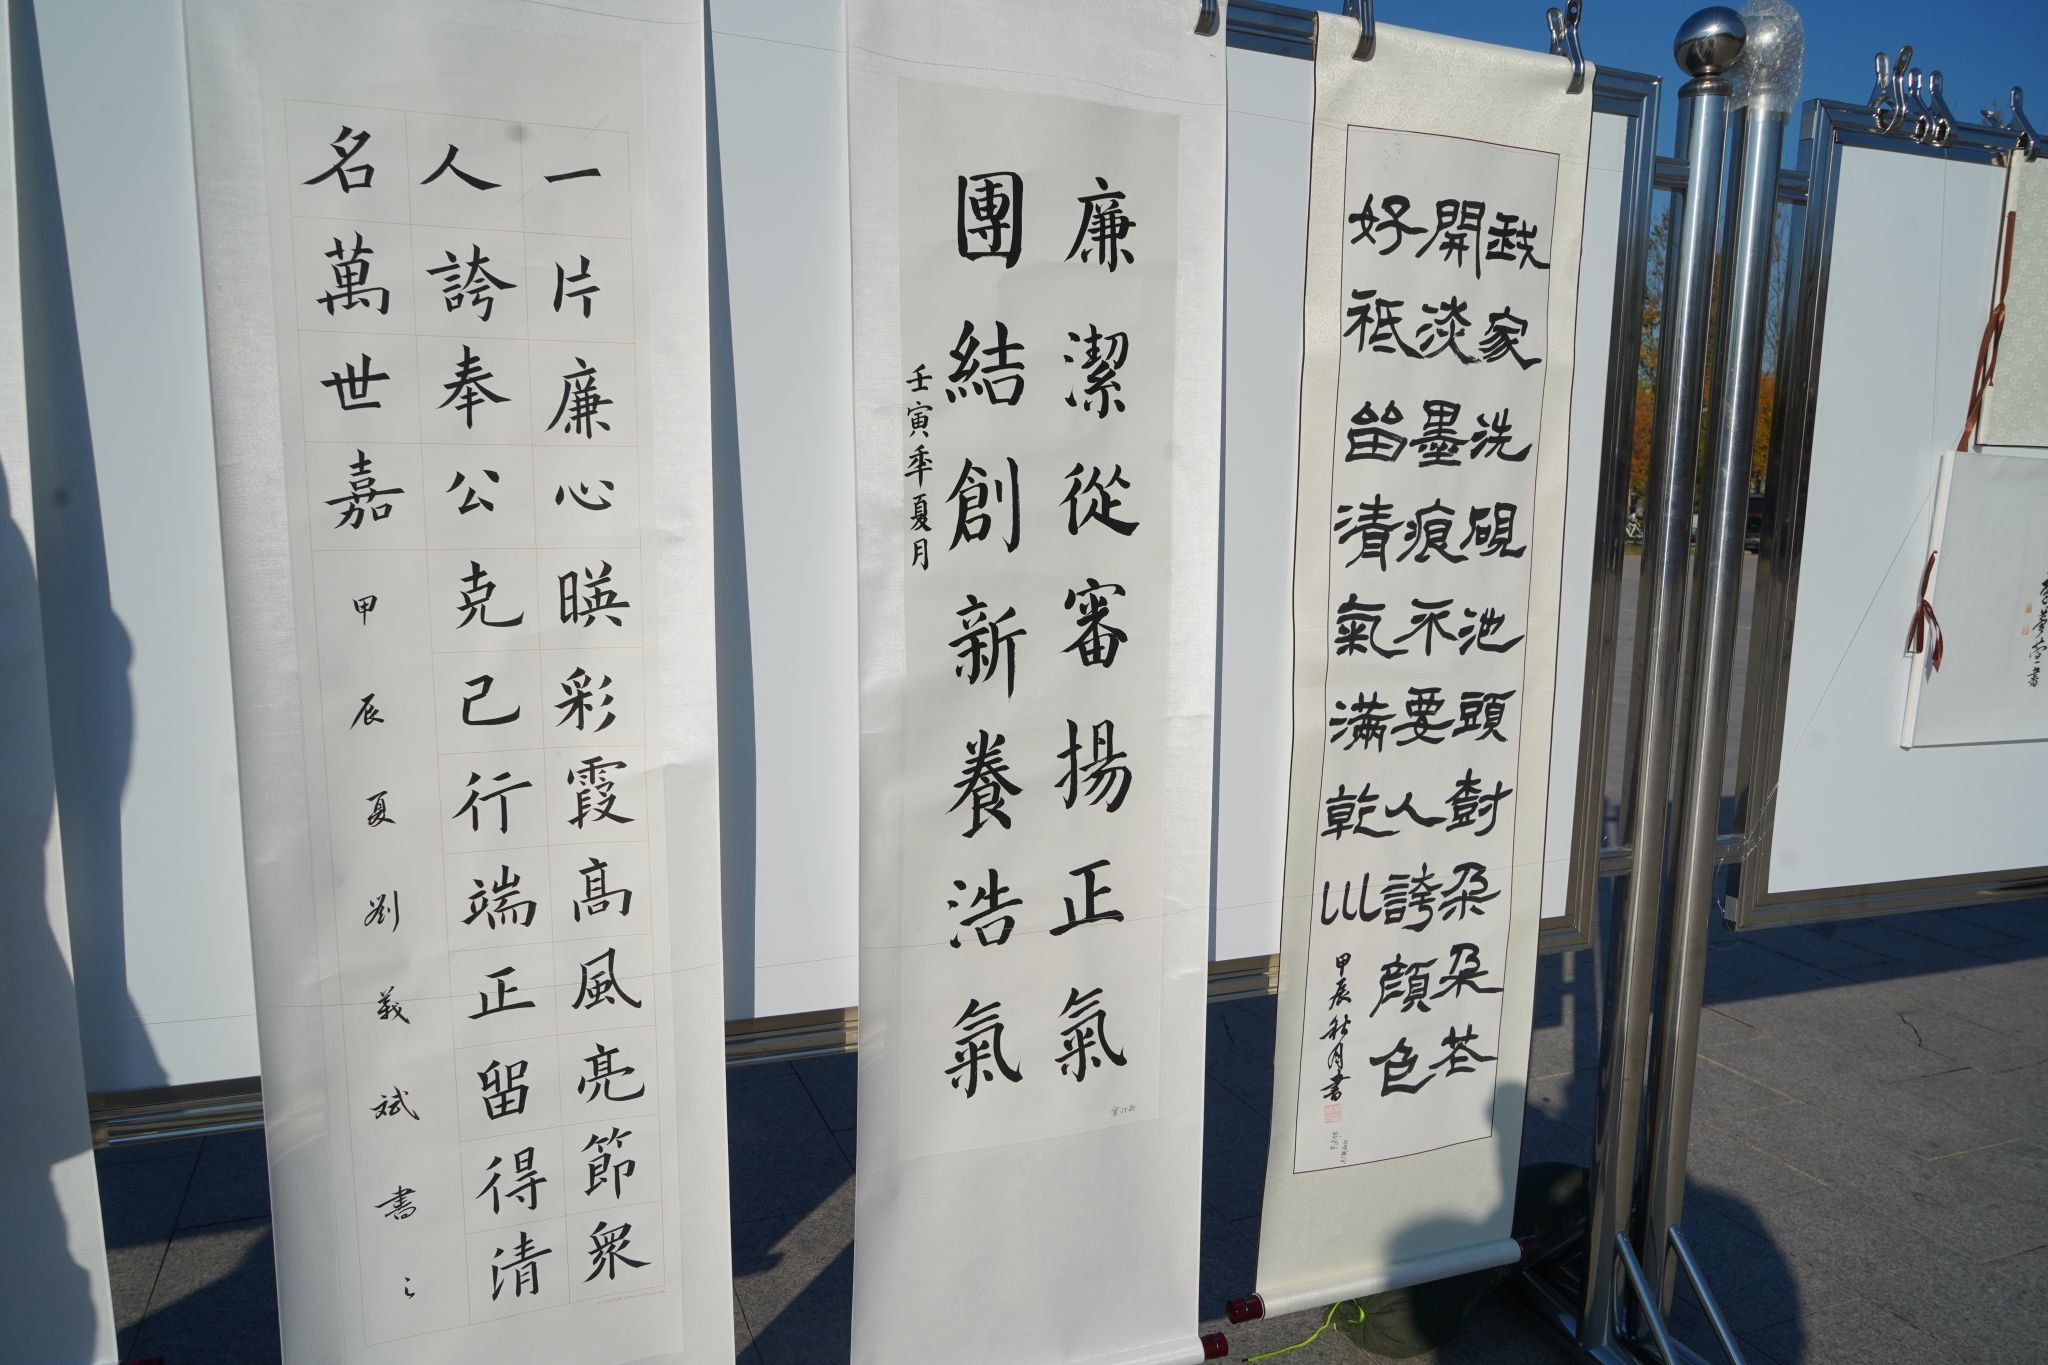 一片廉心暎彩霞高風亮節衆
人誇奉公克己行端正留得清
名萬世嘉
甲辰夏劉義斌書
廉潔從審揚正氣
團結創新養浩氣
壬寅年夏月
我家洗硯池頭樹朵朵花
開淡墨痕不要人誇顔色
好祗留清氣滿乾川
甲辰秋月書